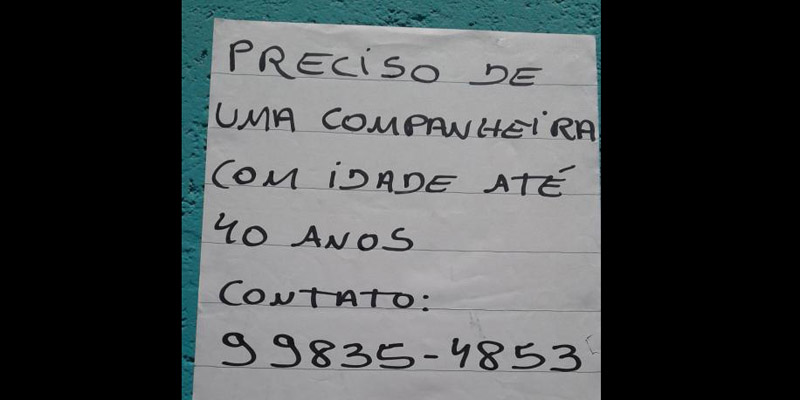 PRECISO DE
UMA COMPANHEIRA
COM IDADE ATÉ
40 ANOS
CONTATO:
99835-4853